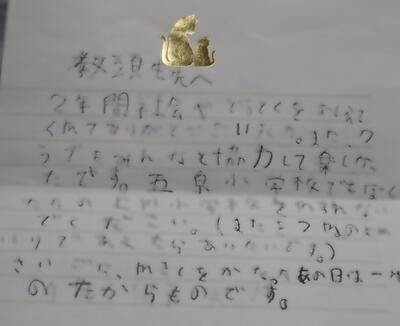 教頭先生へ
2年間社会やどうとくをおしえ
くれてありがとうございました。また、ク
ラブでみんなと協力して楽しかっ
たです。五泉小学校でもぼく
たちの上川小学校をわすれない
でください。(またたつ
でああえたらあいたいです。)
さいごに、をかった あの日は一生
のたからものです。